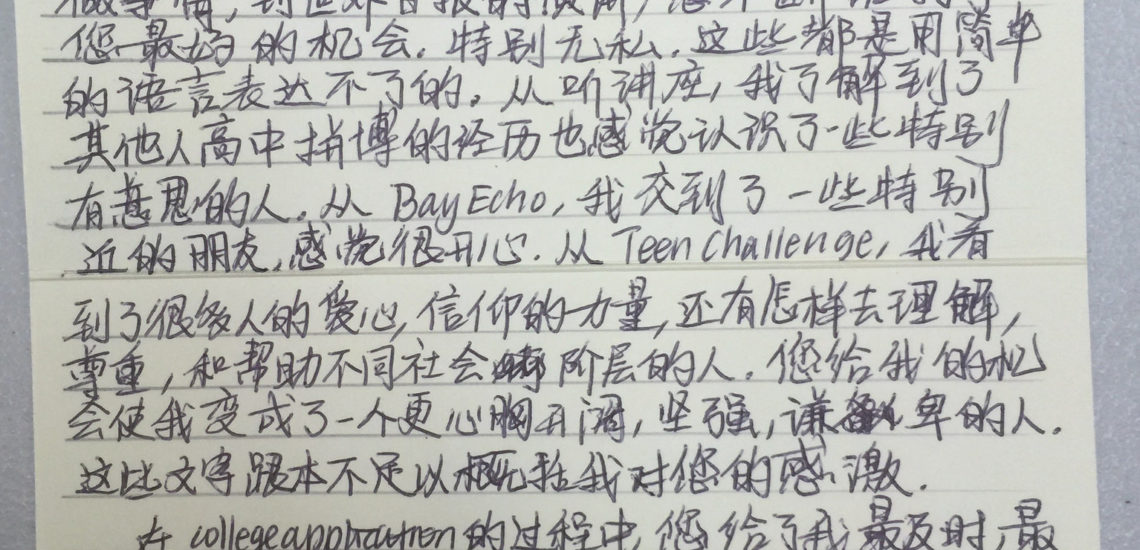 您最好的机会，特别无私，这些都是用简单
的语言表达不了的。从听讲座，我了解到了
其他人高中拼博的经历也感觉认识了一些特别
有意思的人。从 BayEcho，我交到了一些特别
近的朋友，感觉很开心。从 Teen Challenge，我看
到了很多人的爱心，信仰的力量，还有怎样去理解，
尊重，和帮助不同社会阶层的人。您给我的机
会使我变成了一个更心胸开阔，坚强，谦卑的人。
这些文字跟本不足以概括我对您的感激。
在 college application 的过程中，您给了我最及时，最